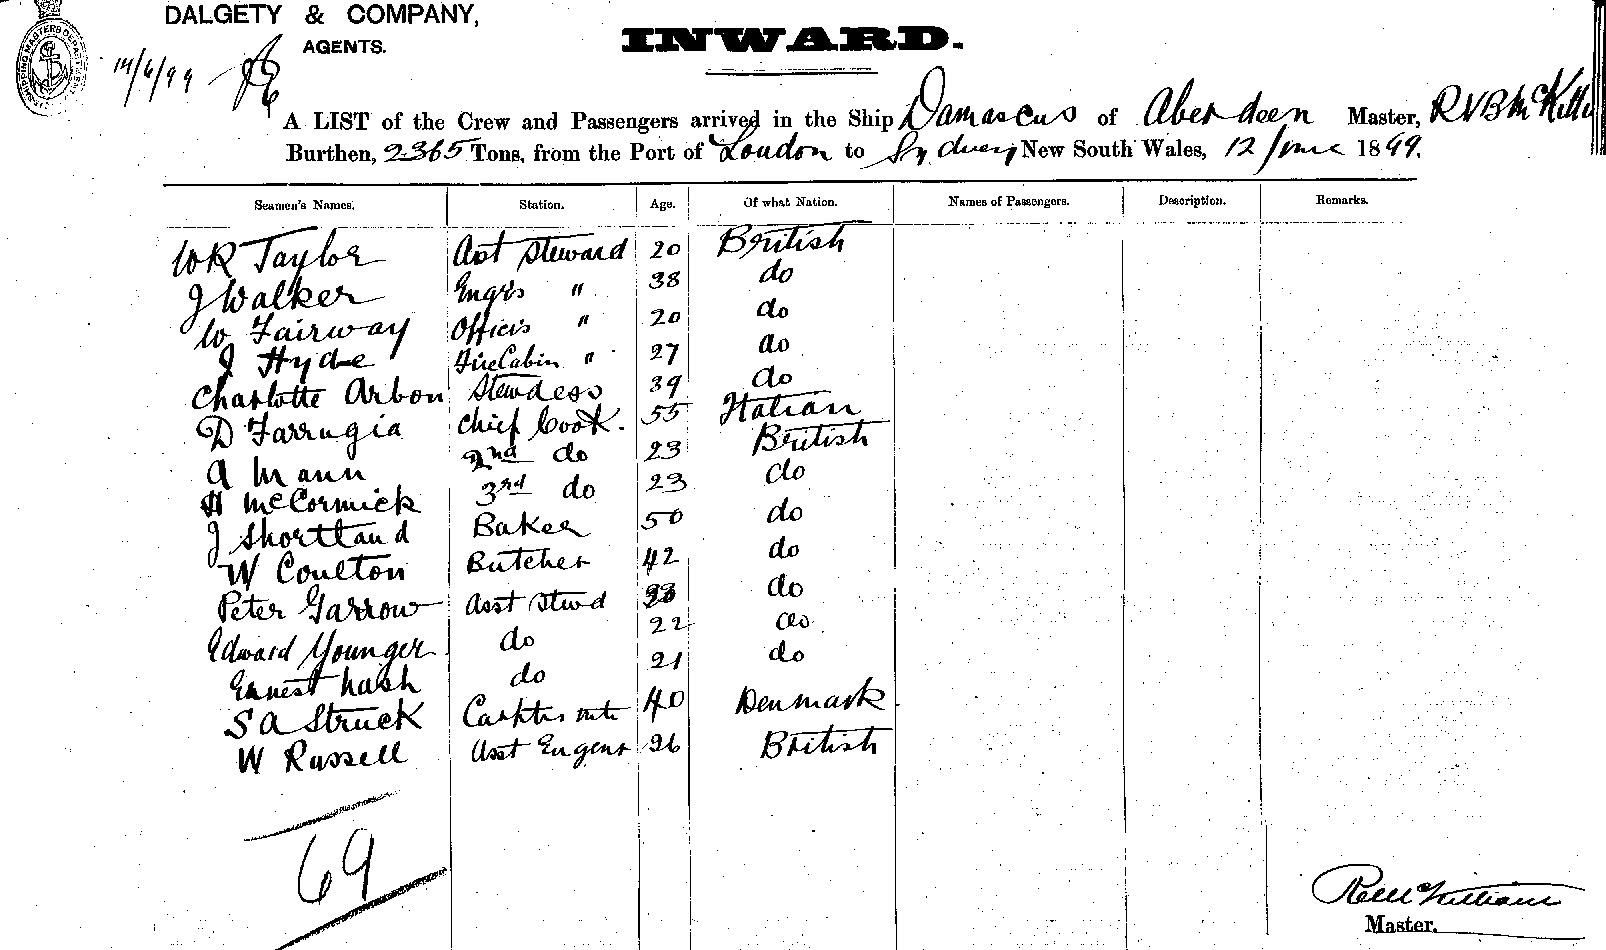 DALGETY & COMPANY,
AGENTS.
INWARD.
14/6/99
A LIST of the Crew and Passengers arrived in the Ship Damascus of Aberdeen Master,
Burthen, 2365 Tons, from the Port of London to Sydney New South Wales, 12 June 1899.
Seamen's Names. Station. Age. Of what Nation. Names of Passengers. Description. Remarks.
W R Taylor Asst Steward 20 British
J Walker Engrs " 38 do
W Fairway Officers " 20 do
J Hyde Cabin " 27 do
Charlotte Arbon Stewdess 39 do
D Farrugia Chief Cook. 55 Italian
A Mann 2nd do 23 British
H McCormick 3rd do 23 do
J Shortland Baker 50 do
W Coulton Butcher 42 do
Peter Garrow Asst Stwd do
Edward Younger do 22 do
Ernest Nash do 21 do
S A Struck 40 Denmark
W Russell Asst 26 British
69
Master.